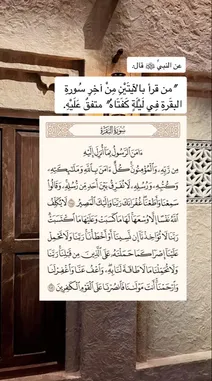 عن النبيّ ﷺ قال:
"من قرأ بالآيَتَيْنِ مِنْ آخِرِ سُورةِ
البقرةِ فِي لَيْلَةٍ كَفَتَاهُ" متفقٌ عَلَيْهِ.
سُورَةُ البَقَرَةِ
ءَامَنَ ٱلرَّسُولُ بِمَآ أُنزِلَ إِلَيْهِ
مِن رَّبِّهِۦ وَٱلْمُؤْمِنُونَ كُلٌّ ءَامَنَ بِٱللَّهِ وَمَلَـٰٓئِكَتِهِۦ
وَكُتُبِهِۦ وَرُسُلِهِۦ لَا نُفَرِّقُ بَيْنَ أَحَدٍ مِّن رُّسُلِهِۦ وَقَالُوا۟
سَمِعْنَا وَأَطَعْنَا غُفْرَانَكَ رَبَّنَا وَإِلَيْكَ ٱلْمَصِيرُ لَا يُكَلِّفُ
ٱللَّهُ نَفْسًا إِلَّا وُسْعَهَا لَهَا مَا كَسَبَتْ وَعَلَيْهَا مَا ٱكْتَسَبَتْ
رَبَّنَا لَا تُؤَاخِذْنَآ إِن نَّسِينَآ أَوْ أَخْطَأْنَا رَبَّنَا وَلَا تَحْمِلْ
عَلَيْنَآ إِصْرًا كَمَا حَمَلْتَهُۥ عَلَى ٱلَّذِينَ مِن قَبْلِنَا رَبَّنَا
وَلَا تُحَمِّلْنَا مَا لَا طَاقَةَ لَنَا بِهِۦ وَٱعْفُ عَنَّا وَٱغْفِرْ لَنَا
وَٱرْحَمْنَآ أَنتَ مَوْلَىٰنَا فَٱنصُرْنَا عَلَى ٱلْقَوْمِ ٱلْكَـٰفِرِينَ